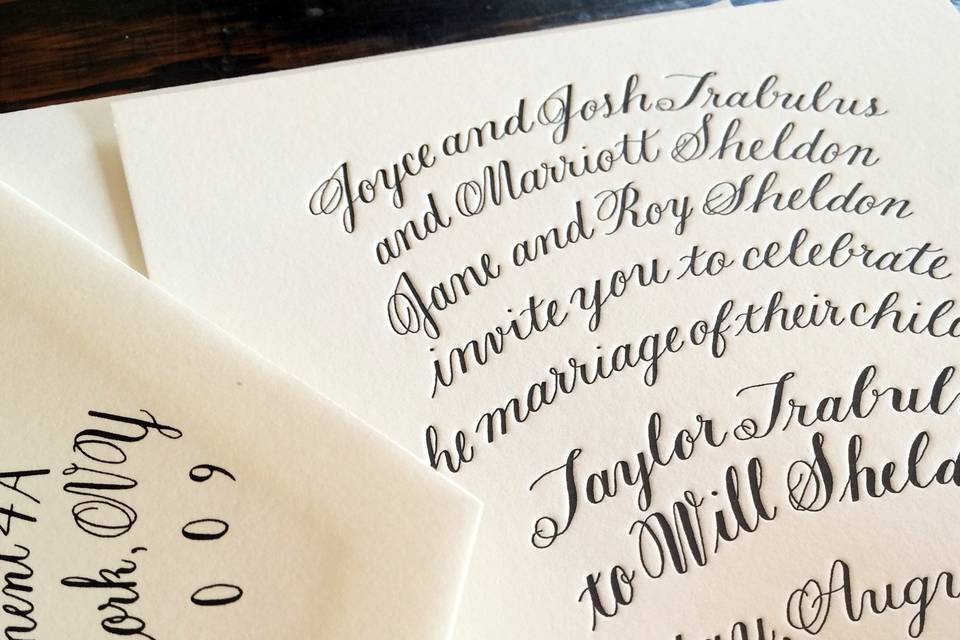 Joyce and Josh Trabulus
and Marriott Sheldon
Jane and Roy Sheldon
invite you to celebrate
he marriage of their child
Taylor Trabul
to Will Sheld
ay, Augu
ment 4A
ork, NY
0 0 9